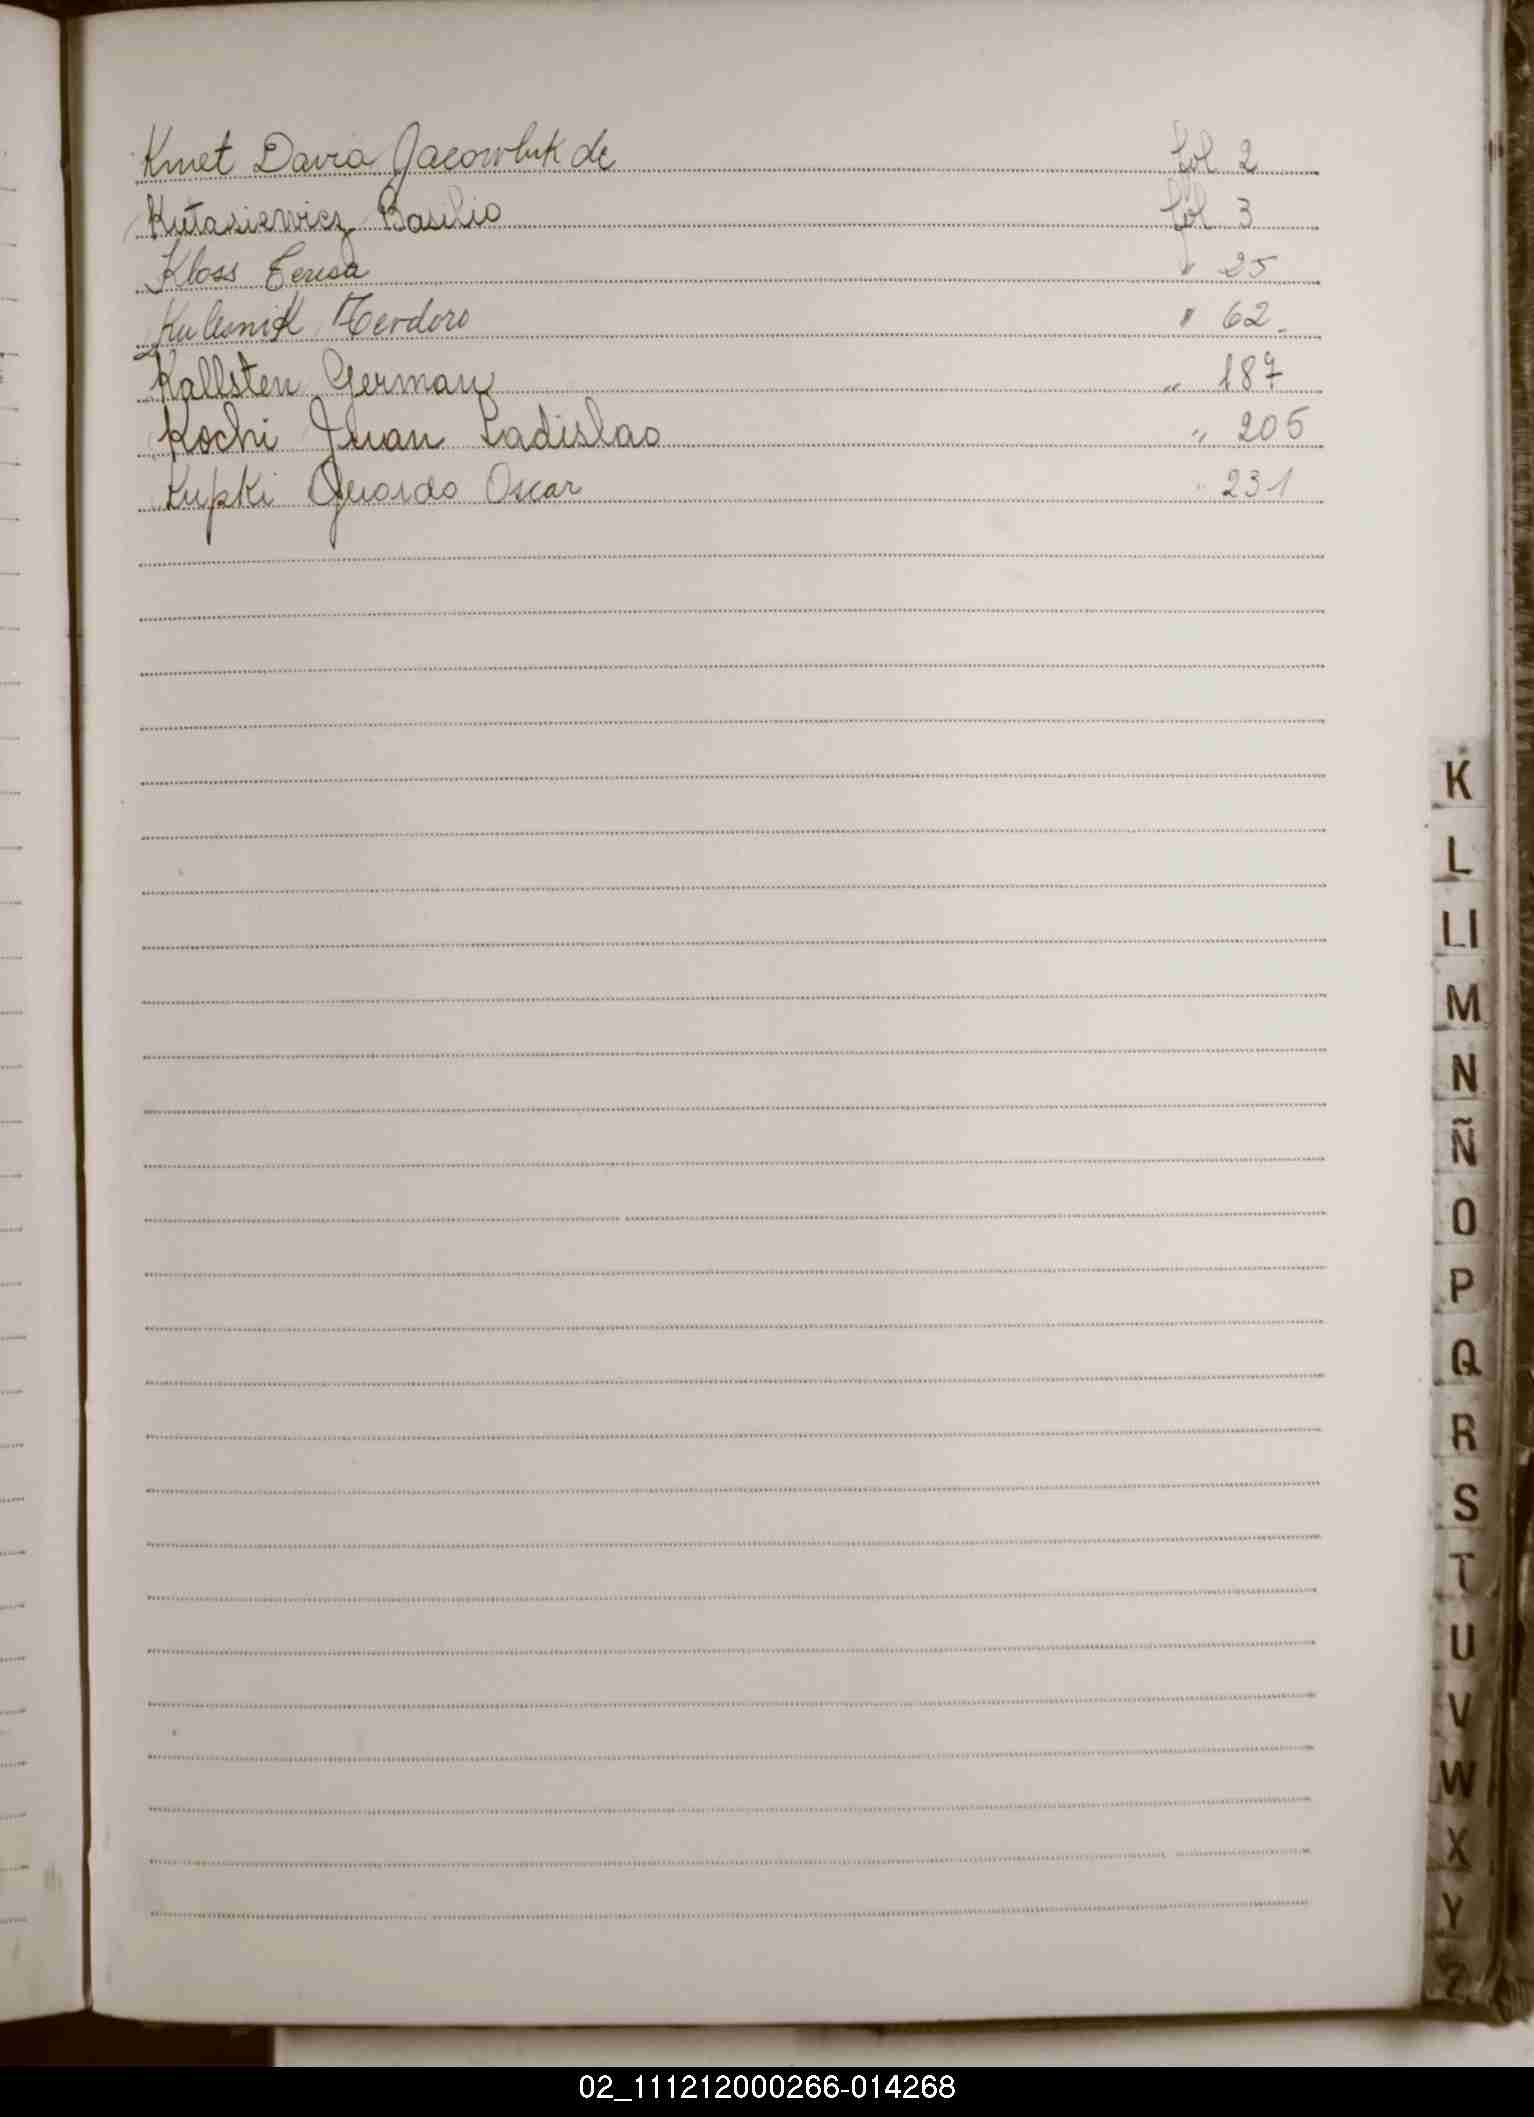 Kmet Daria Jacowluk de fol 2
Kutasiewicz Basilio fol 3
Kloss Teresa " 25
Kulesnik Teodoro " 62.
Kallsten German " 187
Kochi Juan Ladislao " 205
Kupki Gerardo Oscar " 231
K
L
Ll
M
N
Ñ
O
P
Q
R
S
T
U
V
W
X
Y
Z
02_111212000266-014268